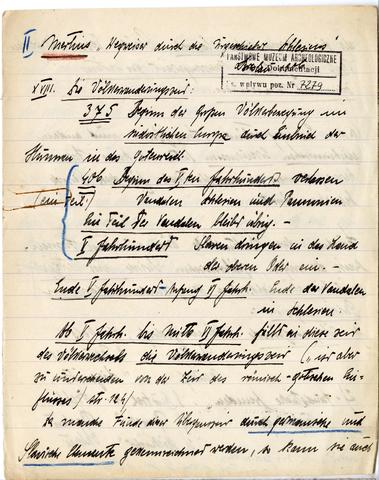 II Mertins, "Wegweiser durch die Urgeschichte Schlesiens"
PAŃSTWOWE MUZEUM ARCHEOLOGICZNE
Dział Dokumentacji
Ks. wpływu poz. Nr 7279
XVIII. Die Völkerwanderungszeit:
375 Beginn der großen Völkerbewegung im
nordöstlichen Europa durch Einbruch der
Hunnen in das Gotenreich
406 Beginn des V ten Jahrhunderts verlassen
(ein Teil) Vandalen Schlesien und Pannonien
Ein Teil der Vandalen bleibt übrig. —
V Jahrhundert Slaven dringen in das Land
der oberen Oder ein. —
Ende V Jahrhundert – Anfang VI Jahrh. Ende der Vandalen
in Schlesien.
Ab V Jahrh. bis Mitte VI Jahrh. fällt in diese Zeit
des Völkerwechsels die Völkerwanderungszeit ("ist aber
zu unterscheiden von der Zeit des römisch-gotischen Ein-
flusses) str. 124/
Da manche Funde dieser durch germanische und
Slavische Elemente gekennzeichnet werden, so kann sie auch